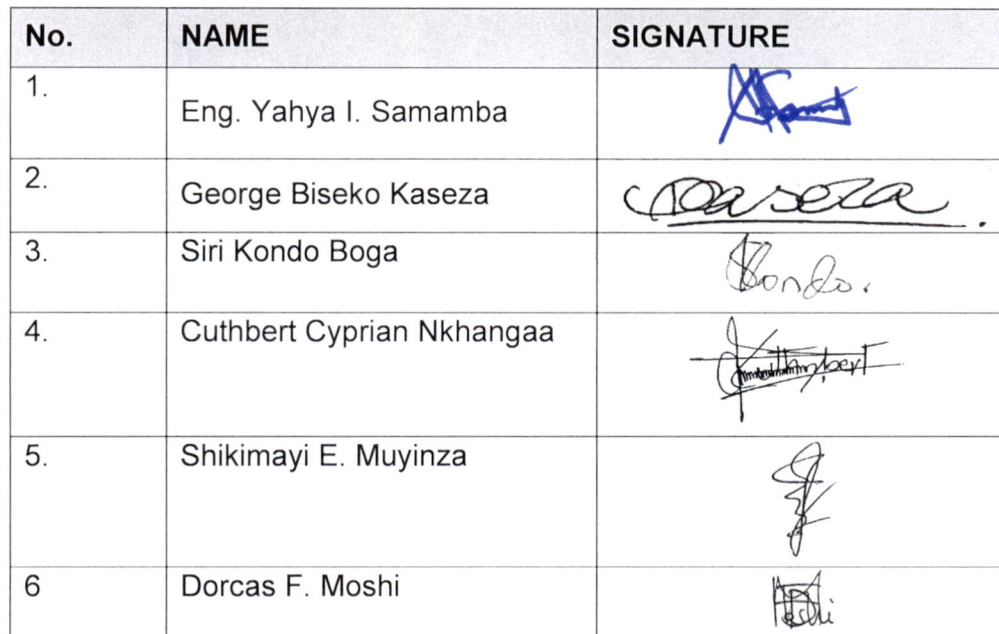 No. NAME SIGNATURE
1. Eng. Yahya I. Samamba
2. George Biseko Kaseza Kaseza
3. Siri Kondo Boga Kondo.
4. Cuthbert Cyprian Nkhangaa
5. Shikimayi E. Muyinza
6 Dorcas F. Moshi